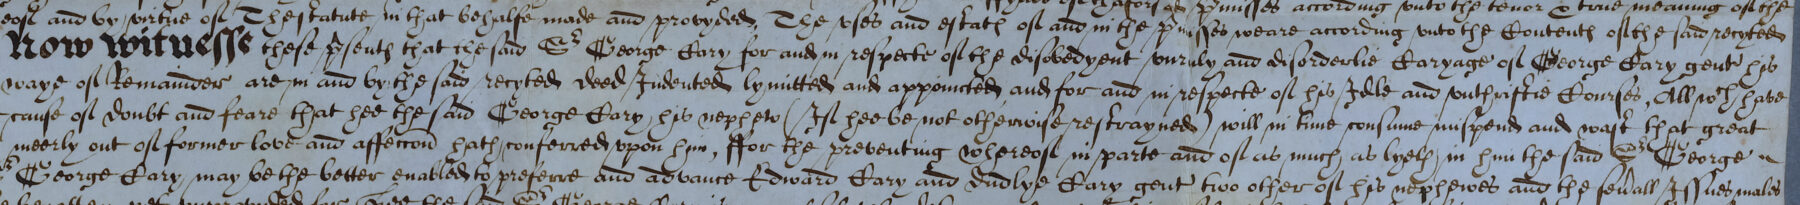 p[re]misses according unto the tenor & true meaning of the
eof and by virtue of The statute in that behalfe made and provyded, The uses and estath of and in the p[re]misses weare according unto the Contenth of the said recyted
Now witnesse these p[re]senth that the said Sr George Cary for and in respecte of the disobedyent unruly and disorderlie Caryage of George Cary gent his
waye of Remainder are in and by the said recyted deed Indented lymitted and appointed, and for and in respecte of his Idle and unthriftie Courses, All wch have
cause of doubt and feare that hee the said George Cary, his nephew (If hee be not otherwise restrayned) will in time consume mispend and wast that great
meerly out of former love and affeccon hath conferred upon him, ffor the preventing whereof in parte and of as much as lyeth in him the said Sr George
Sr George Cary may be the better enabled to preferre and advance Edward Cary and Dudlye Cary gent two other of his nephewes and the sev[er]all Issues males